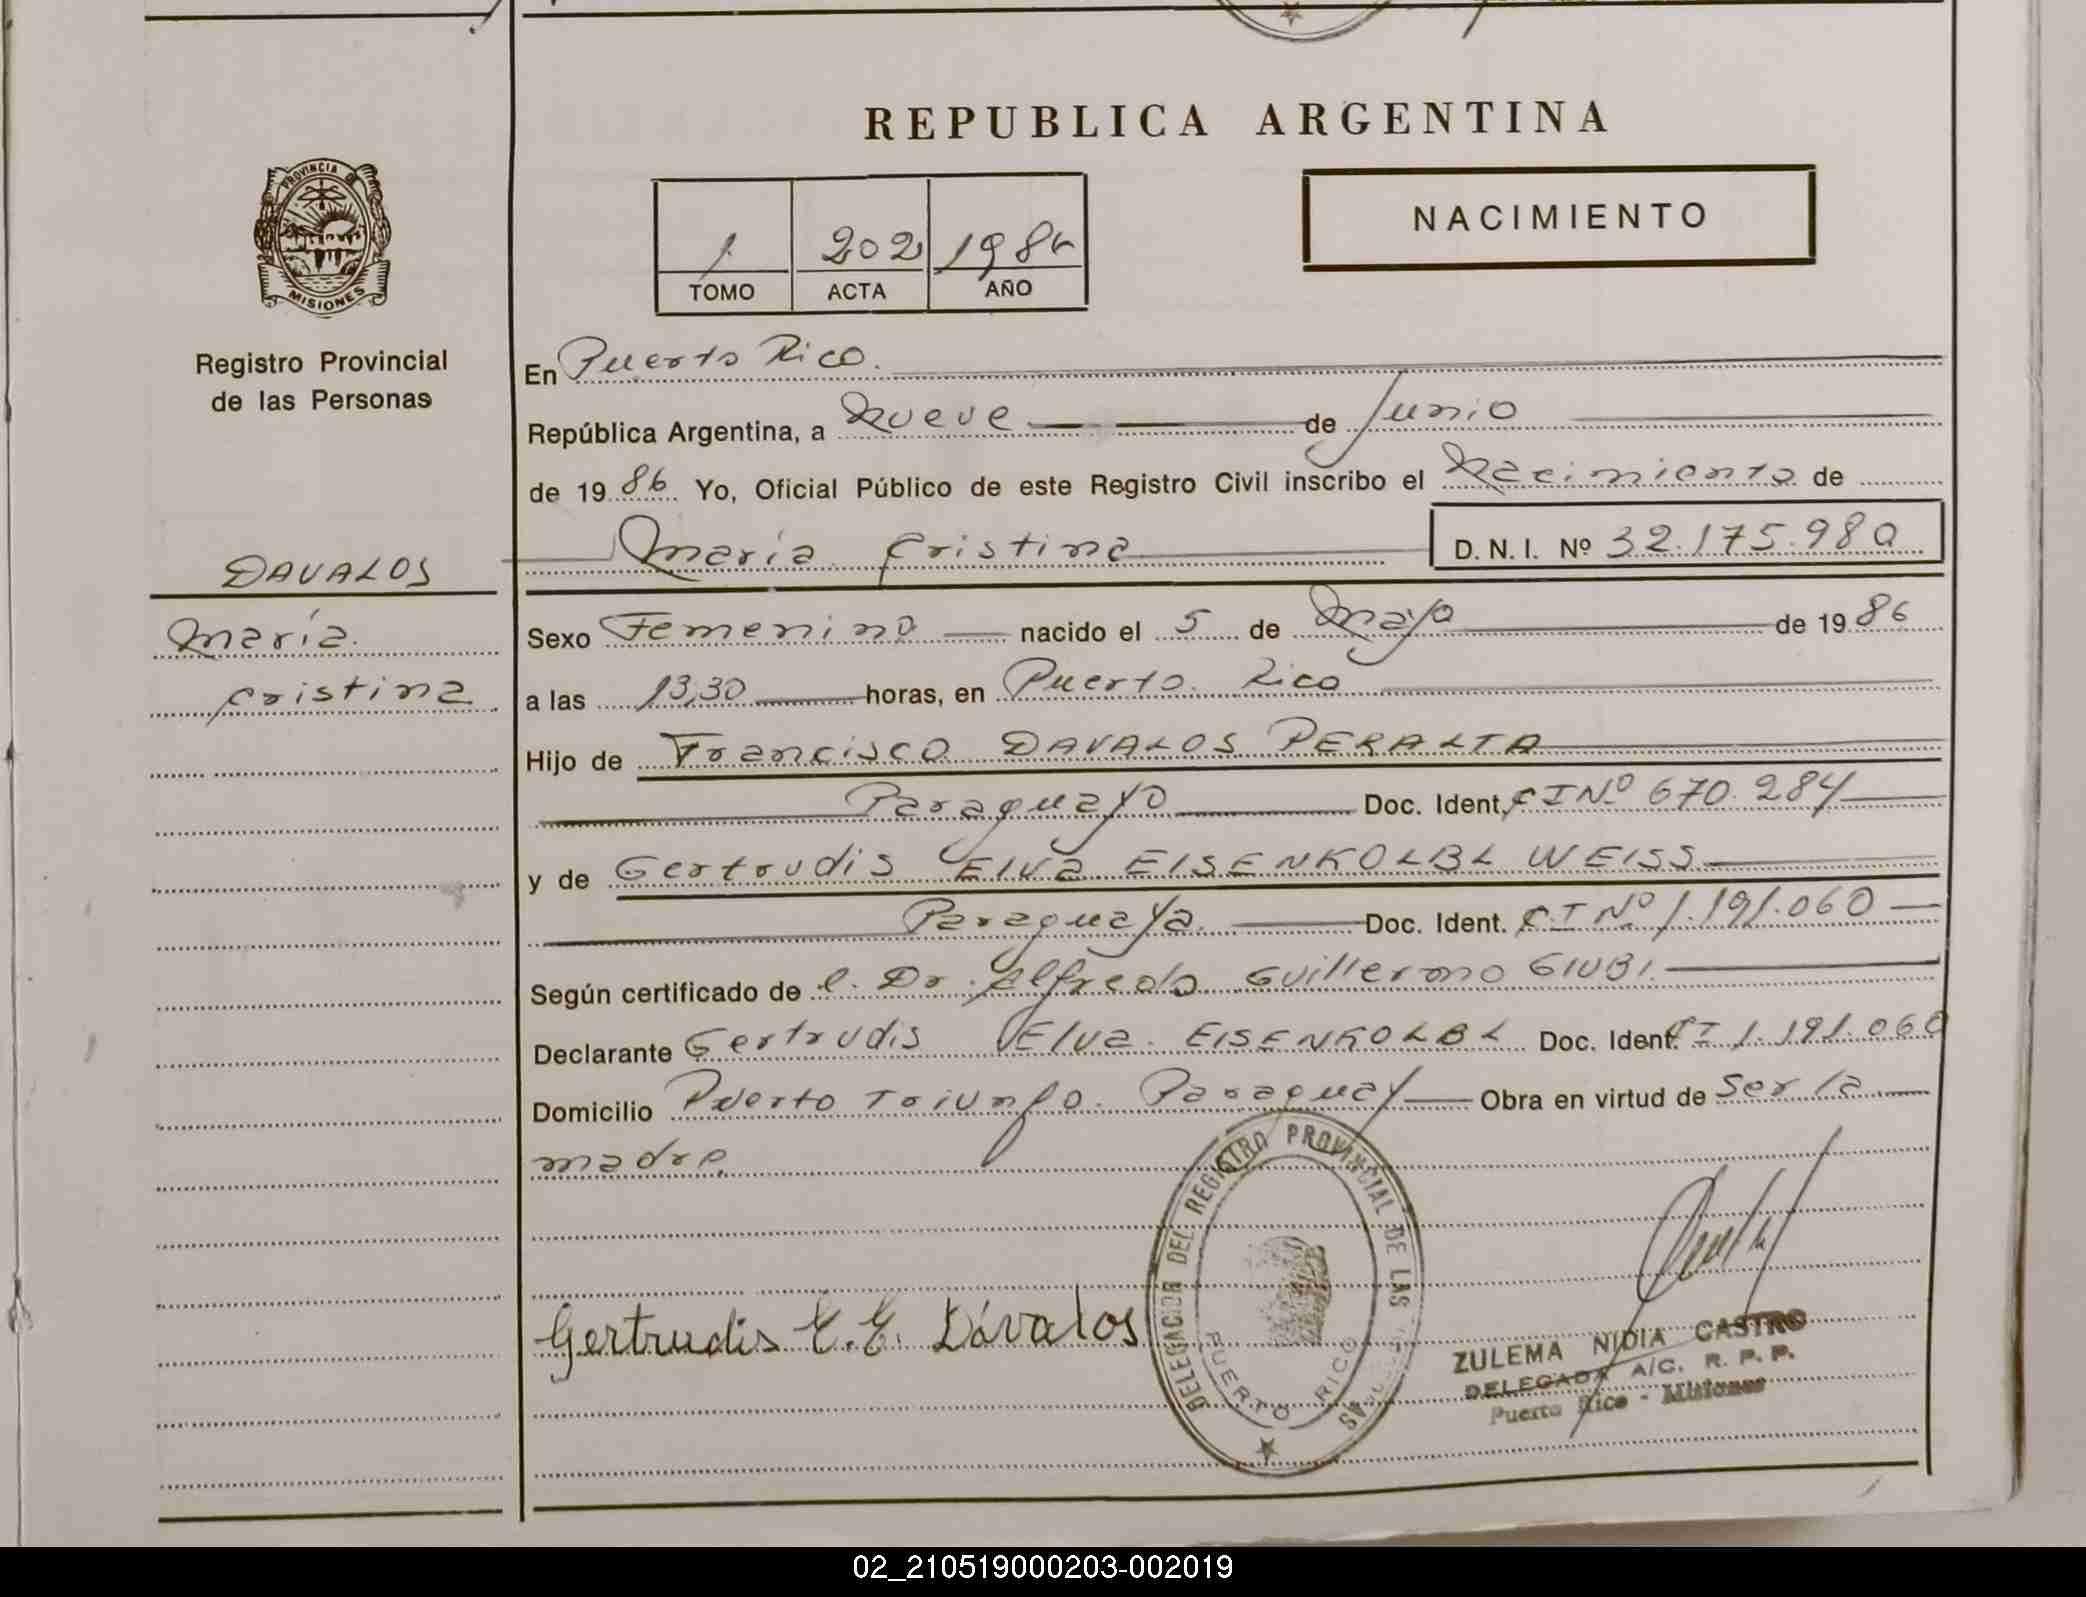 REPUBLICA ARGENTINA
NACIMIENTO
1 202 1986
TOMO ACTA AÑO
PROVINCIA DE
MISIONES
Registro Provincial
de las Personas
DAVALOS
María
Cristina
En Puerto Rico.
República Argentina, a Nueve de Junio
de 1986 Yo, Oficial Público de este Registro Civil inscribo el Nacimiento de
María Cristina D. N. I. Nº 32.175.980
Sexo Femenino nacido el 5 de Mayo de 1986
a las 13,30 horas, en Puerto Rico
Hijo de Francisco DAVALOS PERALTA
Paraguayo Doc. Ident. CI Nº 670.284
y de Gertrudis Elva EISENKOLBL WEISS
Paraguaya. Doc. Ident. C.I Nº 1.191.060
Según certificado de l. Dr. Alfredo Guillermo GIUBI.
Declarante Gertrudis Elva. EISENKOLBL Doc. Ident. CI 1.191.060
Domicilio Puerto Triunfo. Paraguay Obra en virtud de Ser la
madre.
Gertrudis E. E. Dávalos
DELEGACION DEL REGISTRO PROVINCIAL DE LAS PERSONAS
PUERTO RICO
ZULEMA NIDIA CASTRO
DELEGADA A/C. R. P. P.
Puerto Rico - Misiones
02_210519000203-002019